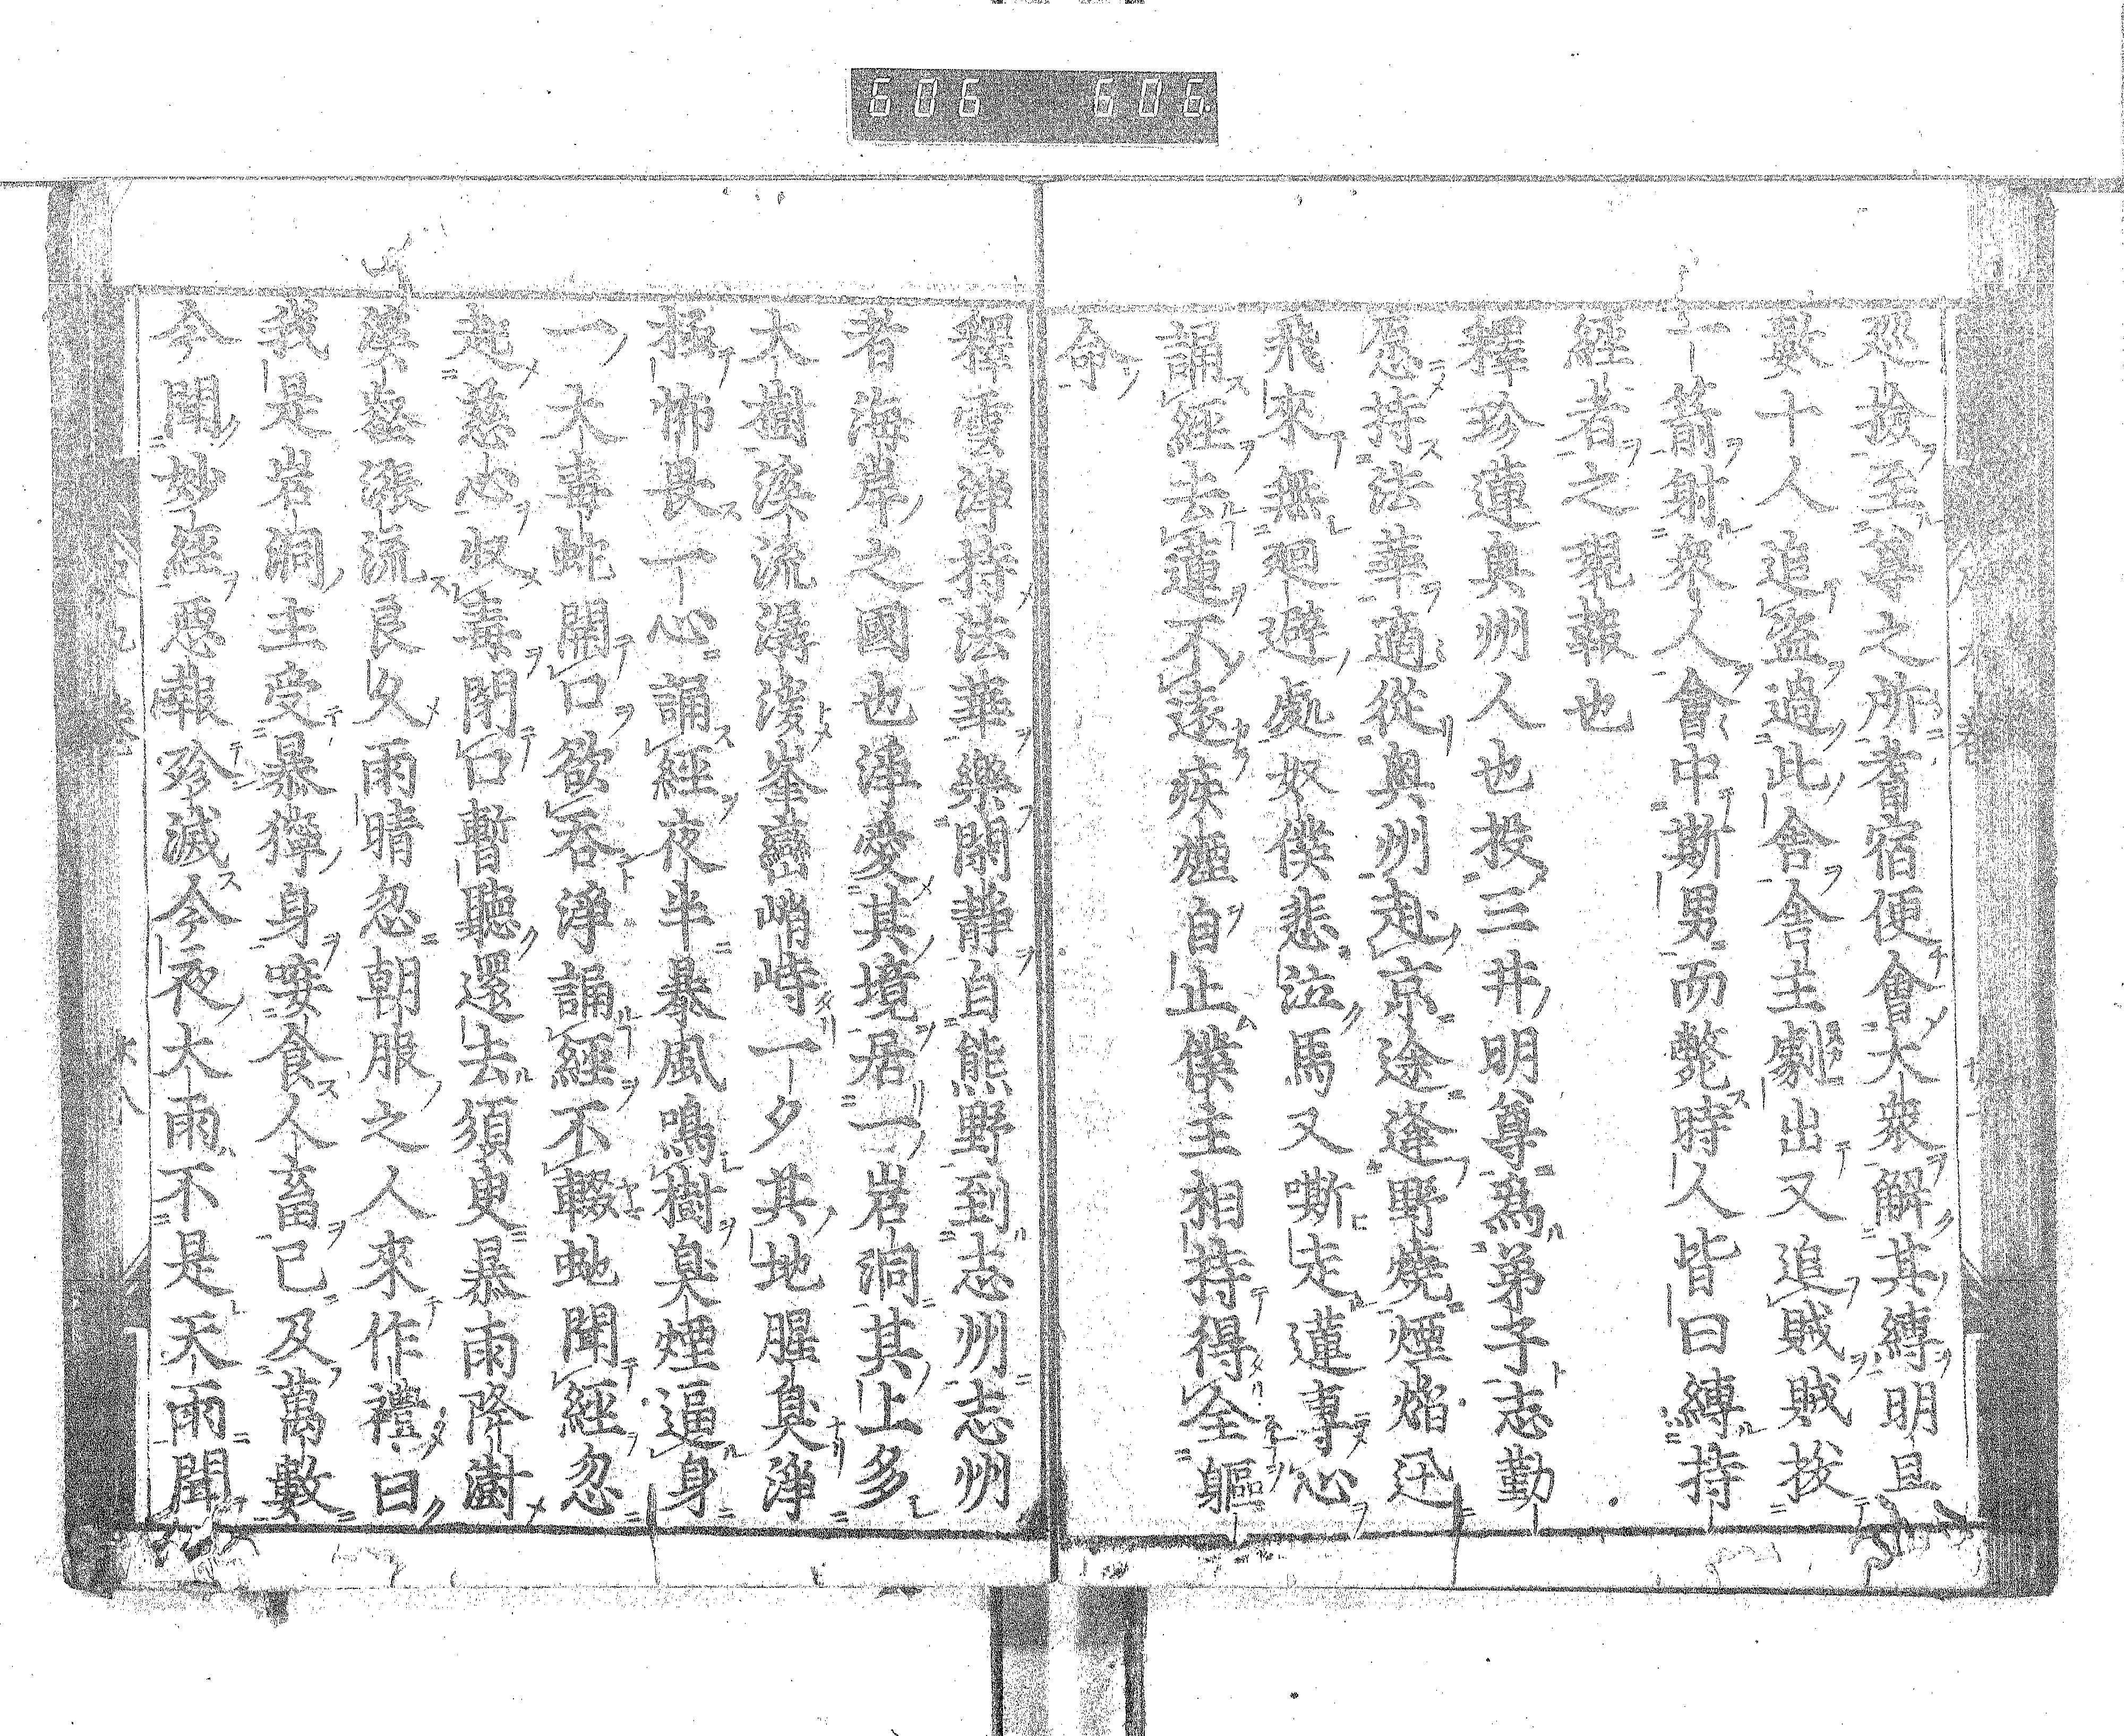 606 606
巡撿至尊之所耆宿便會大衆解其縛明旦
數十人追盗過此舎舎主劇出又追賊賊拔
一箭射衆人會中斯男而斃時人皆曰縛持
經者之現報也
釋珍蓮奥州人也投三井明尊爲弟子志勤
愿持法華適從奥州赴京途逢野燒煙焔迅
飛來無廻避處奴僕悲泣馬又嘶走蓮專心
誦經去蓮不遠疾煙自止僕主相持得全軀
命
釋雲淨持法華樂閑靜自熊野到志州志州
者海岸之國也淨愛其境居一岩洞其上多
大樹溪流潺湲峯巒峭峙一夕其地腥臭淨
極怖畏一心誦經夜半暴風鳴樹臭煙逼身
一大毒蛇開口欲呑淨誦經不輟虵聞經忽
起慈心收毒閉口暫聽還去須臾暴雨降澍
溪壑漲流良久雨晴忽朝服之人來作禮曰
我是岩洞主受暴獰身噉食人畜已及萬數
今聞妙經惡報殄滅今夜大雨不是天雨聞